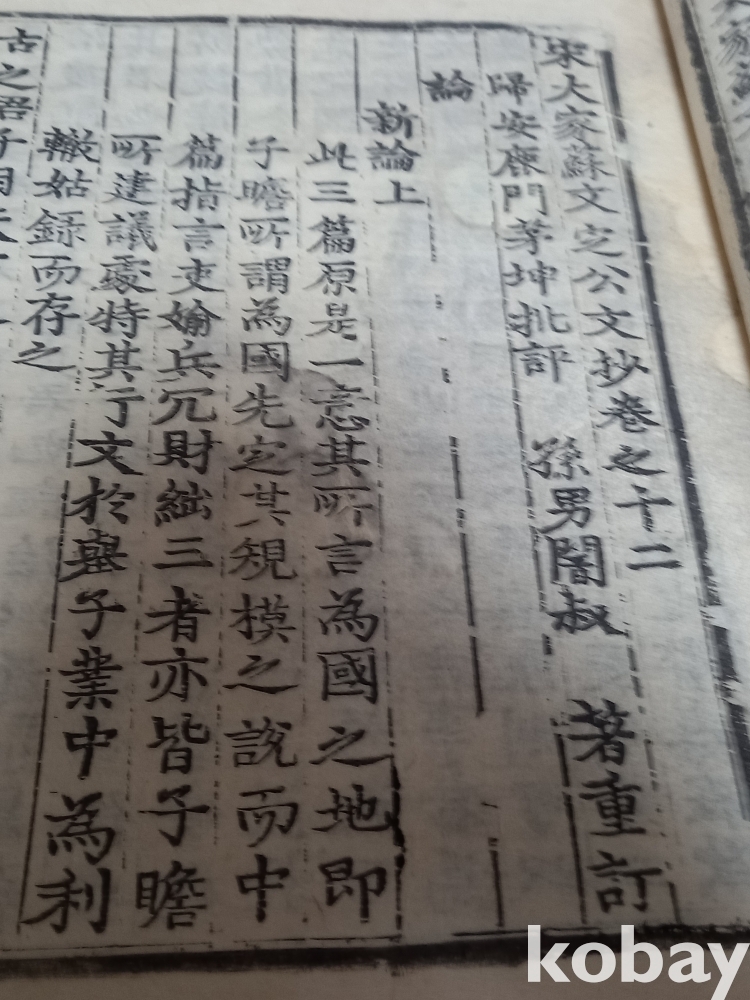 宋大家蘇文定公文抄卷之十二
歸安鹿門茅坤批評 孫男闇叔 著重訂
論
新論上
此三篇原是一意其所言為國之地即
子瞻所謂為國先定其規模之說而中
篇指言吏媮兵冗財絀三者亦皆子瞻
所建議處特其行文於舉子業中為利
轍姑録而存之
古之君子因
kobay